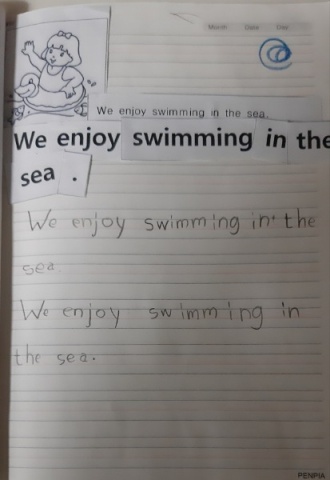 Month Date Day
We enjoy swimming in the sea.
We enjoy swimming in the
sea .
We enjoy swimming in the
sea.
We enjoy swimming in
the sea.
PENPIA